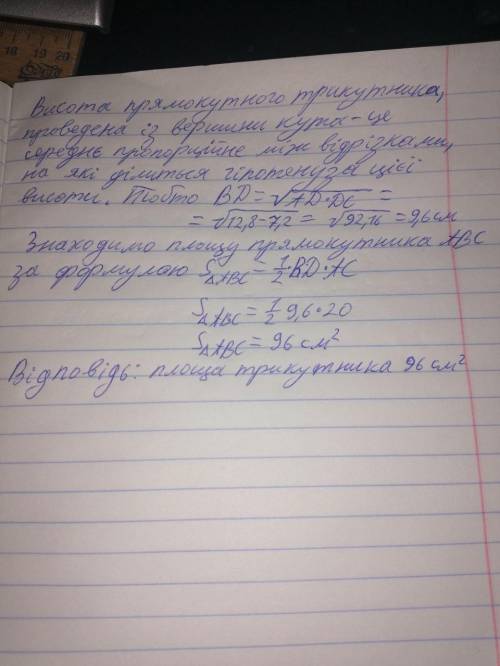 18 19 20
Висота прямокутного трикутника,
проведена із вершини кута - це
середнє пропорційне між відрізками,
на які ділиться гіпотенуза цієї
висоти. Тобто BD = √AD·DC =
= √12,8-7,2 = √92,16 = 9,6 см
Знаходимо площу прямокутника ABC
за формулою S△ABC = 1/2·BD·AC
S△ABC = 1/2 9,6·20
S△ABC = 96 см²
Відповідь: площа трикутника 96 см²